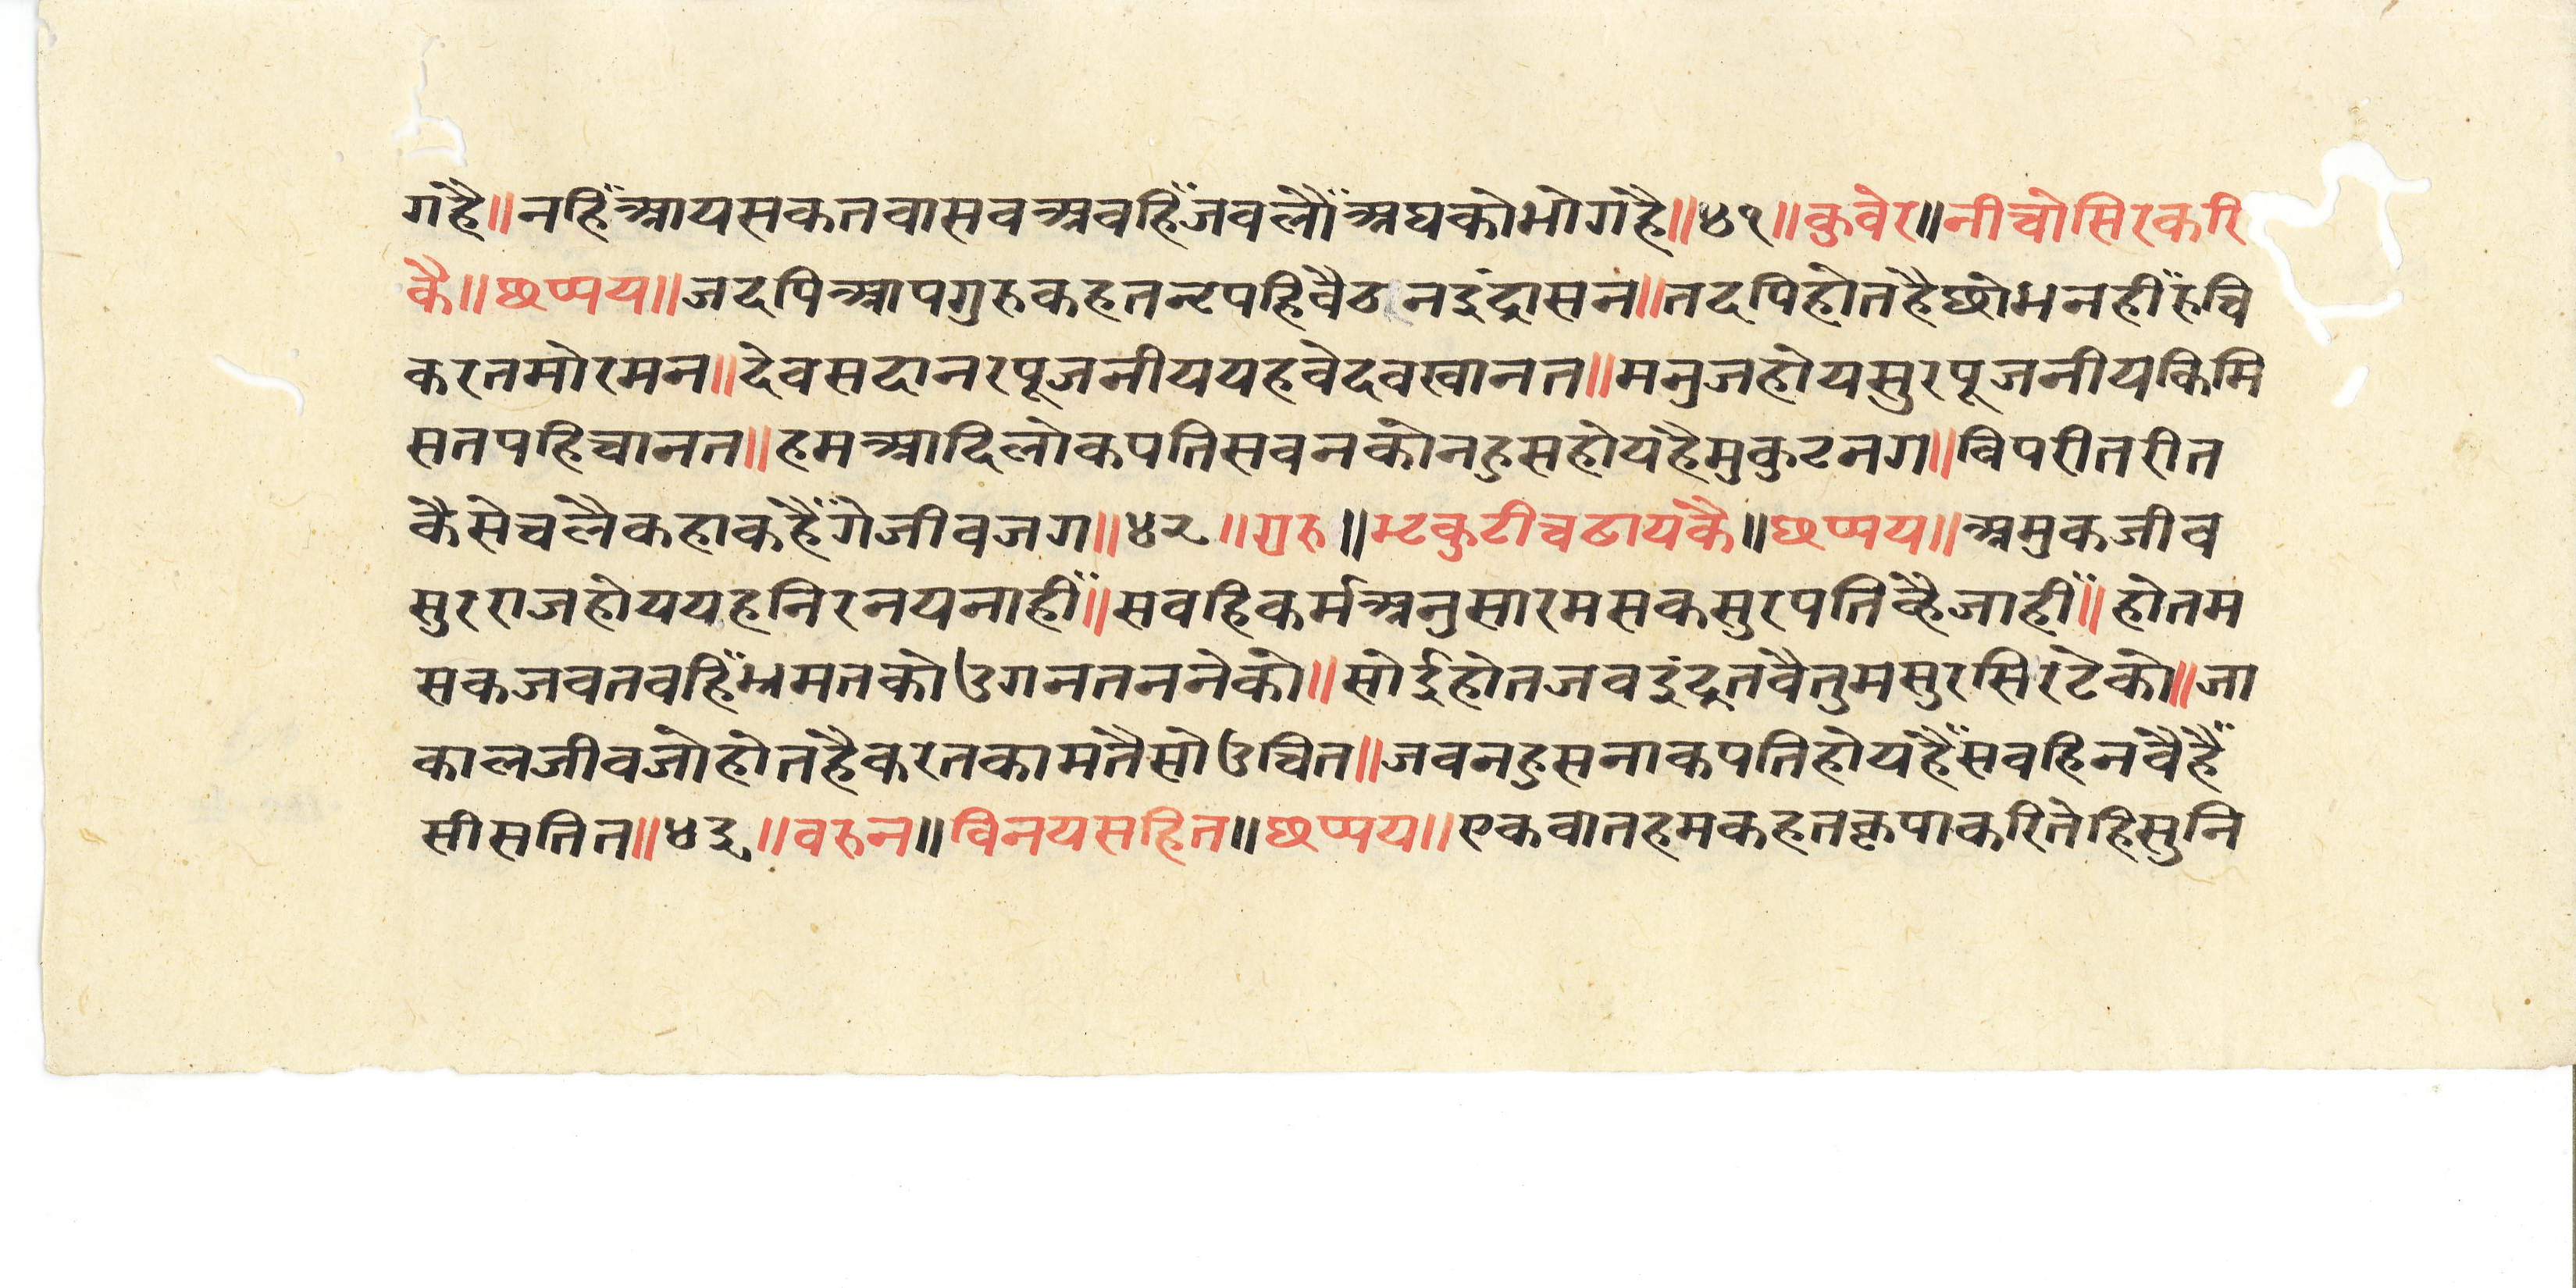 गहै॥नहिँआयसकतवासवअवहिँजवलौँअघकोभोगहै॥४१॥कुवेर॥नीचोसिरकरि
कै॥छप्पय॥जदपिआपगुरुकहतनृपहिवैठनइंद्रासन॥तदपिहोतहैछोभनहीँरुचि
करतमोरमन॥देवसदानरपूजनीययहवेदवखानत॥मनुजहोयसुरपूजनीयकिमि
सतपहिचानत॥हमआदिलोकपतिसवनकोनहुसहोयहैमुकुटनग॥विपरीतरीत
कैसेचलैकहाकहैँगेजीवजग॥४२॥गुरु॥भृकुटीचढायकै॥छप्पय॥अमुकजीव
सुरराजहोययहनिरनयनाहीँ॥सवहिकर्मअनुसारमसकसुरपतिव्हैजाहीँ॥होतम
सकजवतवहिँभ्रमतकोउगनतननेको॥सोईहोतजवइंद्रतवैतुमसुरसिरटेको॥जा
कालजीवजोहोतहैकरतकामतैसोउचित॥जवनहुसनाकपतिहोयहैँसवहिनवैहैँ
सीसतित॥४३॥वरुन॥विनयसहित॥छप्पय॥एकवातहमकहतकृपाकरितेहिसुनि